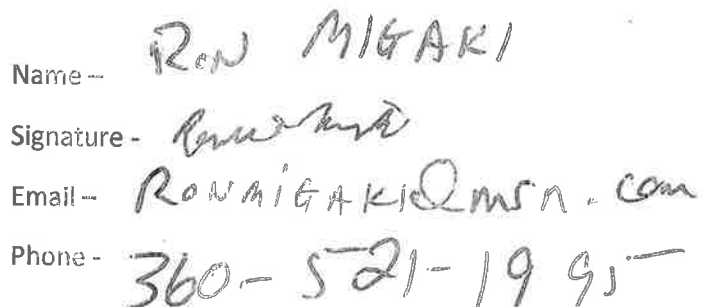 Name - RON MIGAKI
Signature -
Email - RONMIGAKI@msn.com
Phone - 360-521-1995